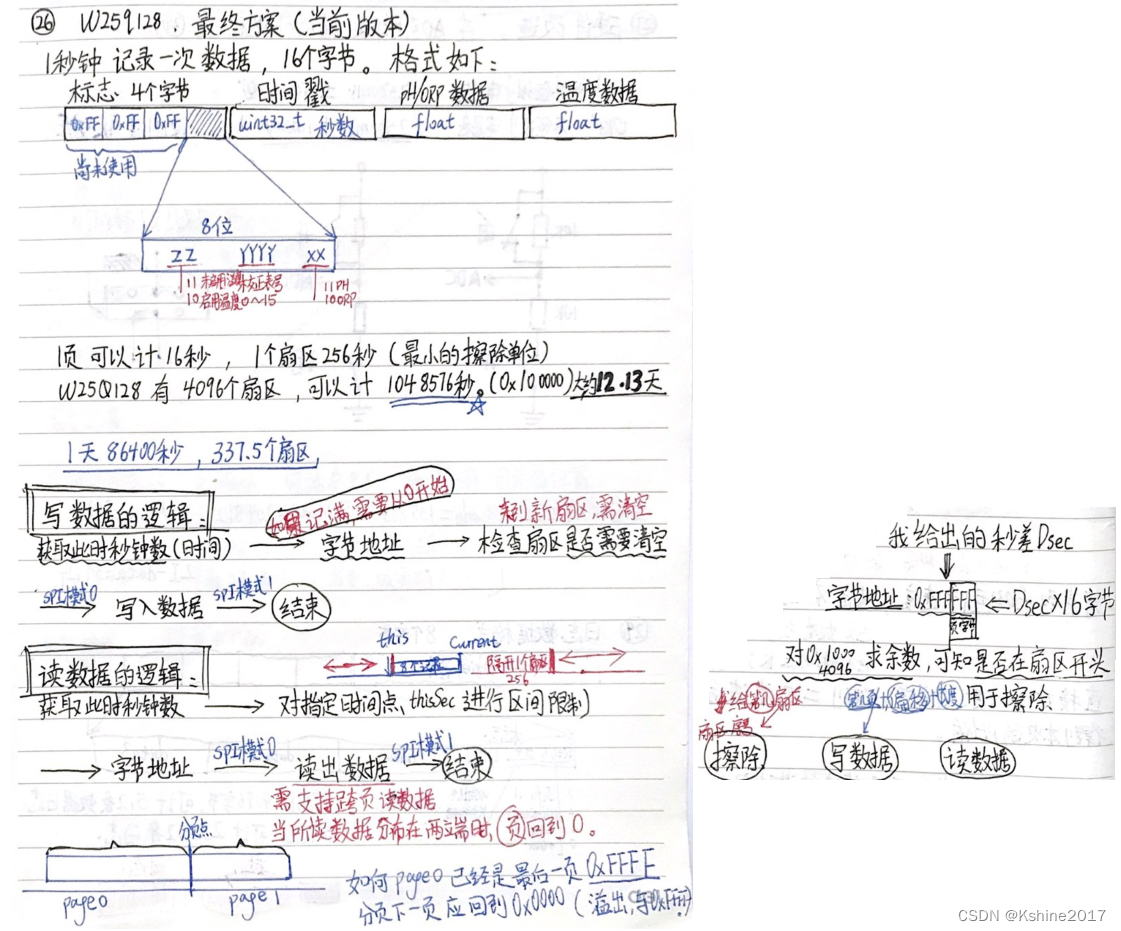 ㉖ W25Q128. 最终方案(当前版本)
1秒钟 记录一次数据, 16个字节。格式如下:
标志·4个字节 时间戳 pH/ORP 数据 温度数据
0xFF 0xFF 0xFF uint32_t 秒数 float float
尚未使用
8位
ZZ YYYY XX
11 11 PH
10 启用温度 0～15 10 ORP
1页 可以计·16秒, 1个扇区256秒 (最小的擦除单位)
W25Q128 有 4096个扇区, 可以计 1048576秒。(0x100000) 大约12.13天
1天 86400秒, 337.5个扇区,
写数据的逻辑:
如果记满,需要从0开始
来到新扇区,需清空
获取此时秒钟数(时间) → 字节地址 → 检查扇区是否需要清空
SPI模式0 写入数据 SPI模式1 结束
this Current
读数据的逻辑:
8个记录 隔开1个扇区
256
获取此时秒钟数 → 对指定时间点、thisSec 进行区间限制
→ 字节地址 SPI模式0 读出数据 SPI模式1 结束
需支持跨页读数据
当所读数据分布在两端时, 页回到0。
分页点
page0 page1
如何page0 已经是最后一页 0xFFFF
分页下一页应回到0x0000 (溢出,与0xFFFF)
我给出的秒差Dsec
字节地址: 0xFFFFFF ⇐ Dsec×16字节
对0x1000 求余数, 可知是否在扇区开头
4096
第几页+偏移+长度 用于擦除
擦除 写数据 读数据
CSDN @Kshine2017